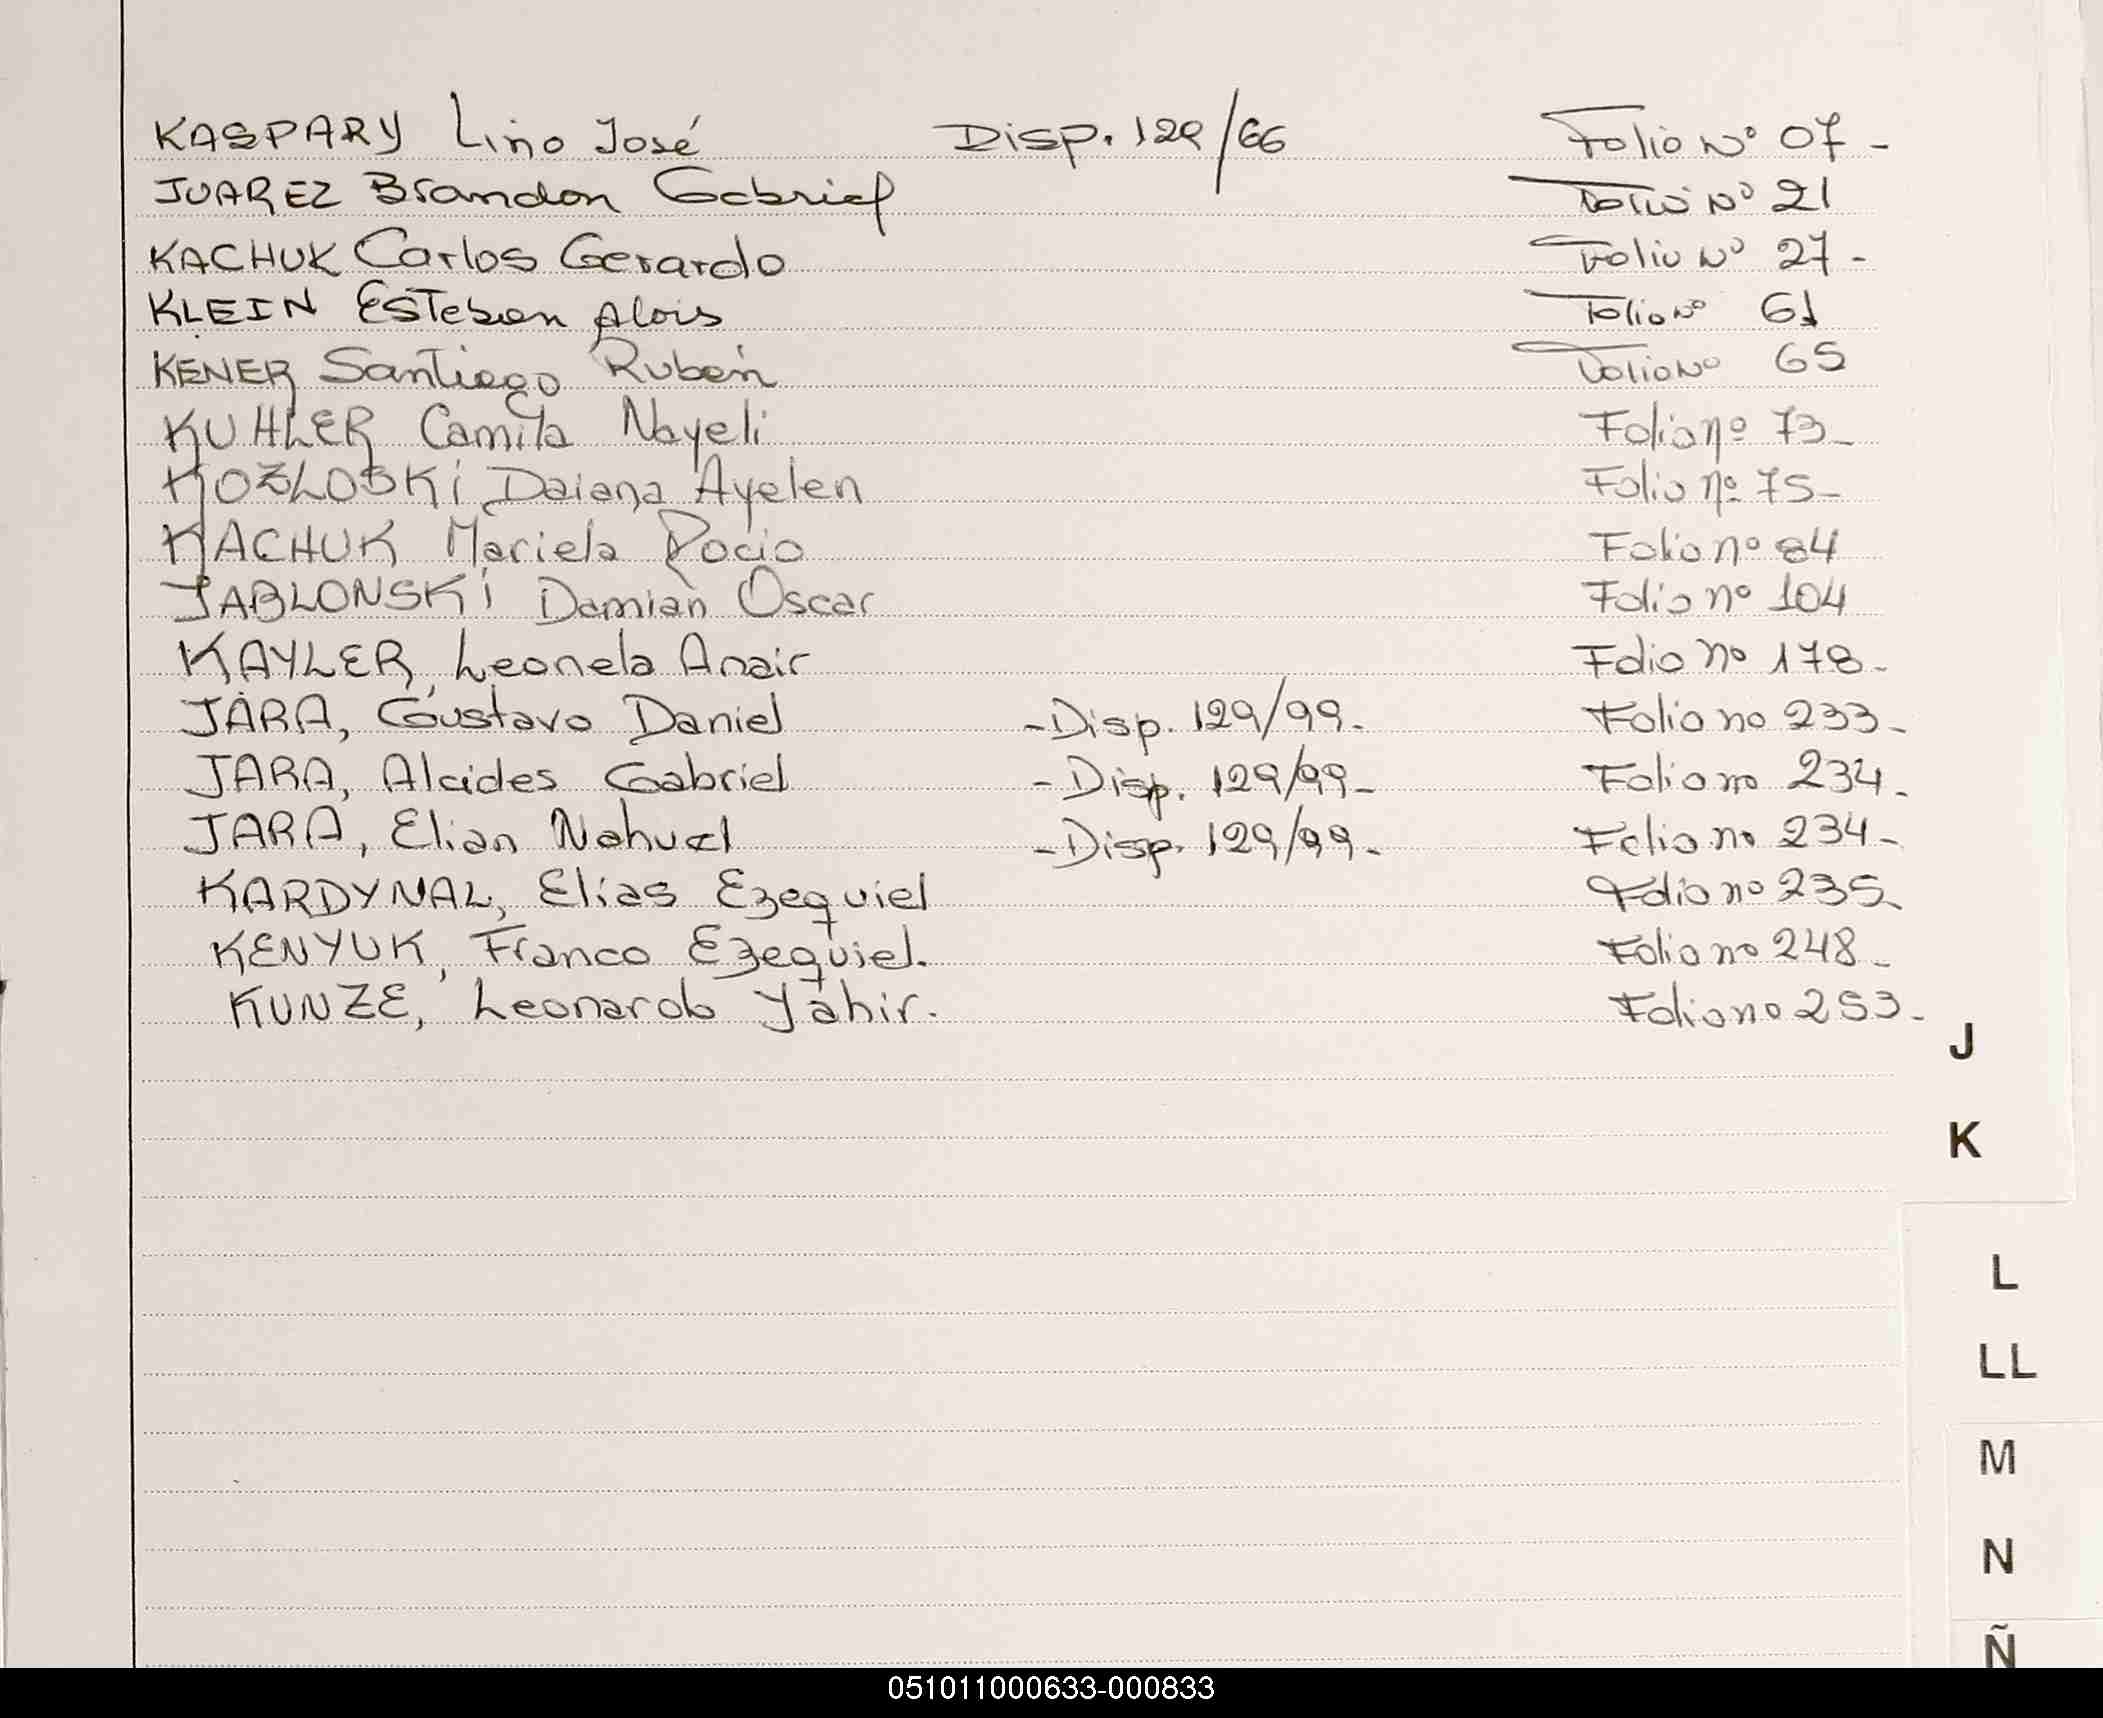 KASPARY Lino José Disp. 129/66 Folio Nº 07-
JUAREZ Brandon Gabriel Folio Nº 21
KACHUK Carlos Gerardo Folio Nº 27-
KLEIN Esteban Alois Folio Nº 61
KENER Santiago Rubén Folio Nº 65
KUHLER Camila Nayeli Folio nº 73-
KOZLOSKI Daiana Ayelen Folio nº 75-
KACHUK Mariela Rocio Folio nº 84
JABLONSKI Damián Oscar Folio nº 104
KAYLER, Leonela Anair Folio nº 178-
JARA, Gustavo Daniel -Disp. 129/99- Folio no 233-
JARA, Alcides Gabriel -Disp. 129/99- Folio no 234-
JARA, Elian Nahuel -Disp. 129/99- Folio no 234-
KARDYNAL, Elías Ezequiel Folio nº 235-
KENYUK, Franco Ezequiel. Folio no 248-
KUNZE, Leonardo Yahir. Folio no 253-
J
K
L
LL
M
N
Ñ
051011000633-000833